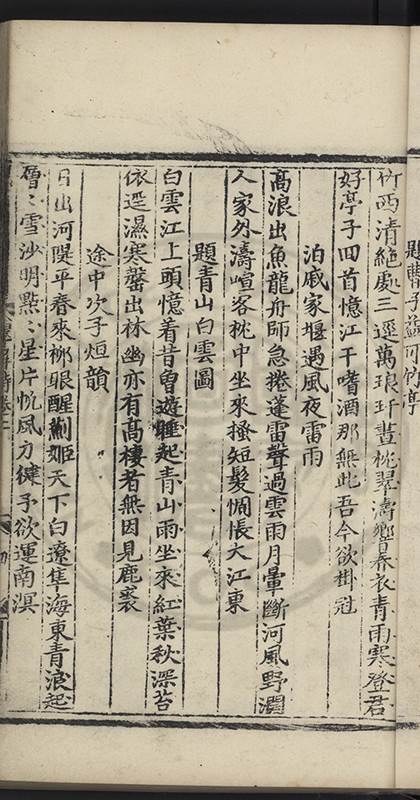 題曹子益可竹亭
竹西清絶處三逕萬琅玕晝枕翠濤響春衣青雨寒登君
好亭子回首憶江干嗜酒那無此吾今欲掛冠
泊戚家堰遇風夜雷雨
高浪出魚龍舟師急捲蓬雷聲過雲雨月暈斷河風野濶
人家外濤喧客枕中坐來搔短髮惆悵大江東
題青山白雲圖
白雲江上頭憶着昔曽遊睡起青山雨坐來紅葉秋深苔
依逕濕寒磬出林幽亦有高樓者無因見鹿裘
途中次子烜韻
日出河隄平春來栁眼醒薊姬天下白遼隼海東青浪起
層〻雪沙明點〻星片帆風力健予欲運南溟